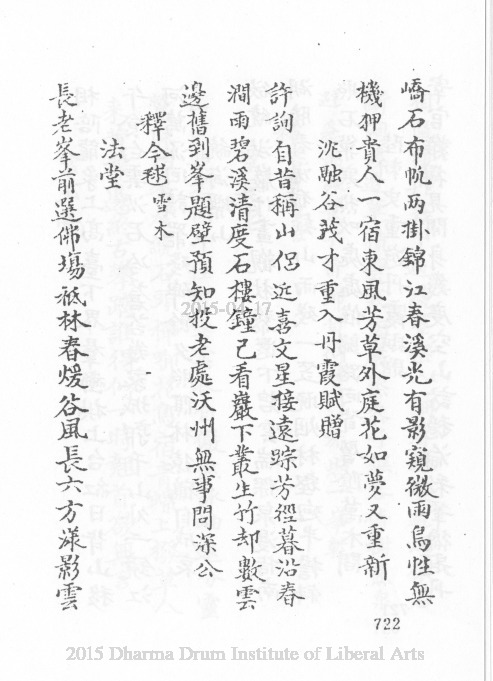 嶠石布帆两掛錦江春溪光有影窺微雨鳥性無
機狎貴人一宿東風芳草外庭花如夢又重新
沈融谷茂才重入丹霞賦贈
許詢自昔稱山侶近喜文星接遠踪芳徑暮沿春
澗雨碧溪清度石樓鐘已看巖下叢生竹却數雲
邊舊到峯題壁預知投老處沃州無事問深公
釋今毬 雪木
法堂
長老峯前選佛場祗林春煖谷風長六方漾影雲
722
2015-04-17
2015 Dharma Drum Institute of Liberal Arts